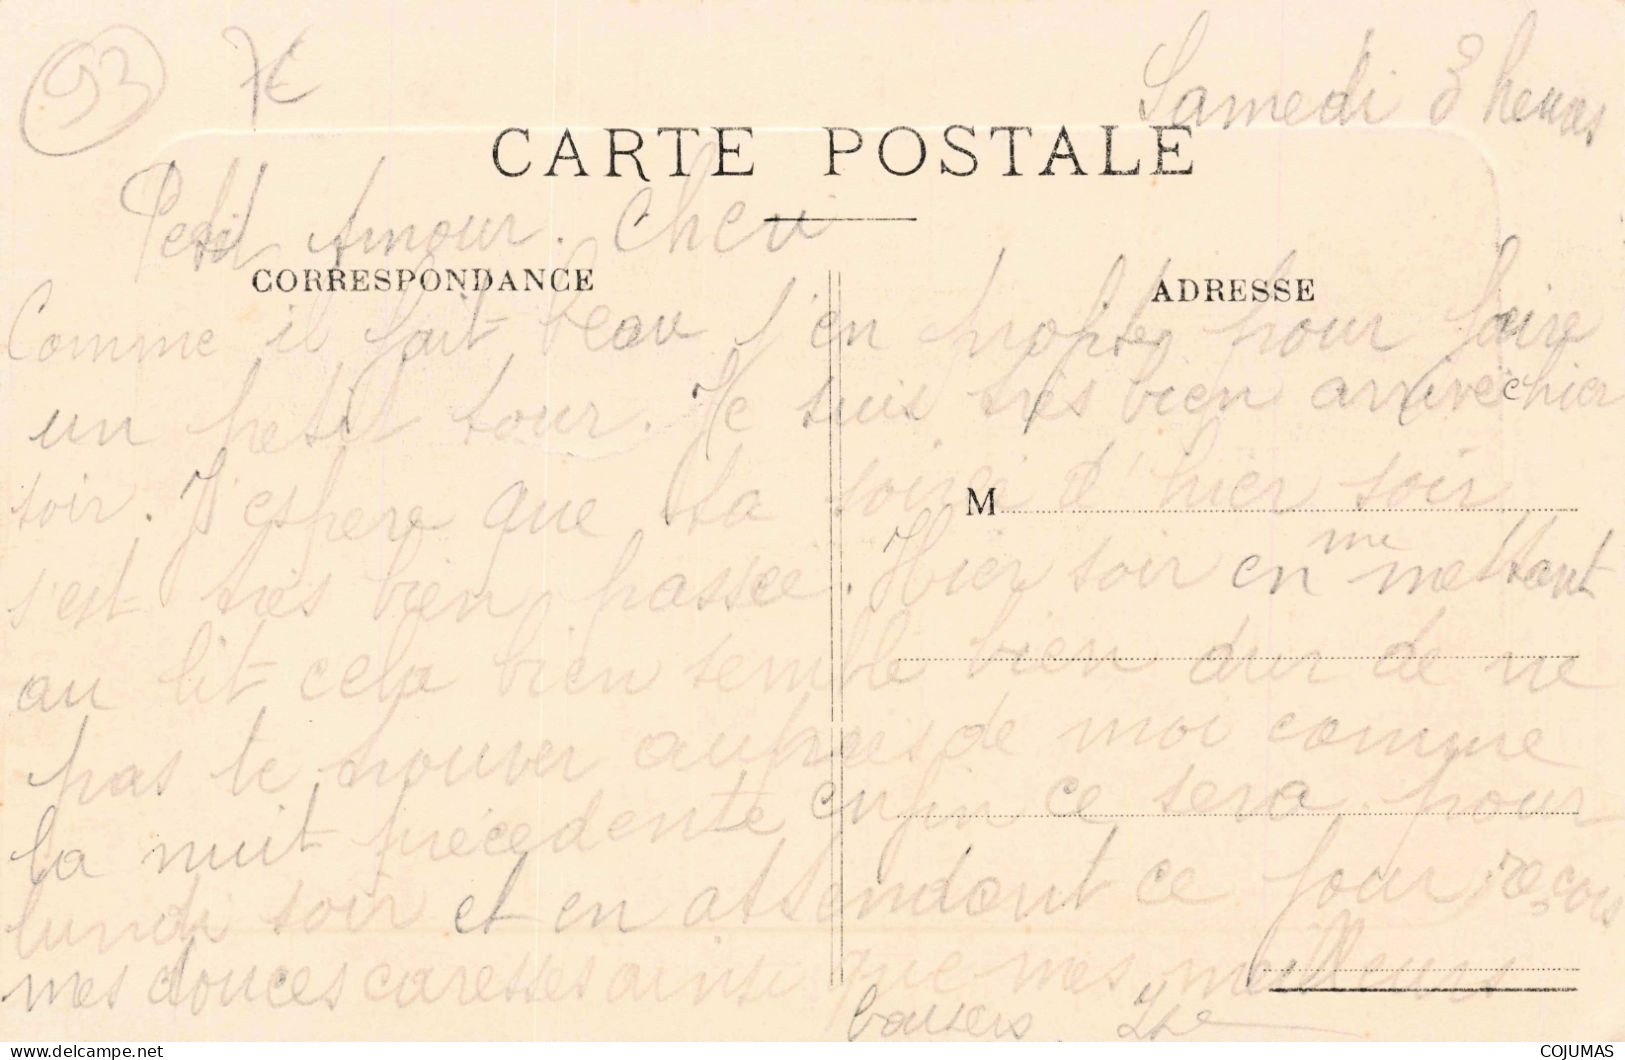 93 7€
Samedi 3 heures
CARTE POSTALE
Petit Amour Cheri
CORRESPONDANCE
ADRESSE
Comme il fait beau j'en profite pour faire
un petit tour. Je suis très bien arrivée hier
soir. J'espere que ta soiré d'hier soir
M
s'est très bien passée. Hier soir en me mettant
au lit cela bien semble bien dur de ne
pas te trouver auprès de moi comme
la nuit précédente enfin ce sera pour
lundi soir et en attendant ce jour reçois
mes douces caresses ainsi que mes meilleurs
baisers
COJUMAS